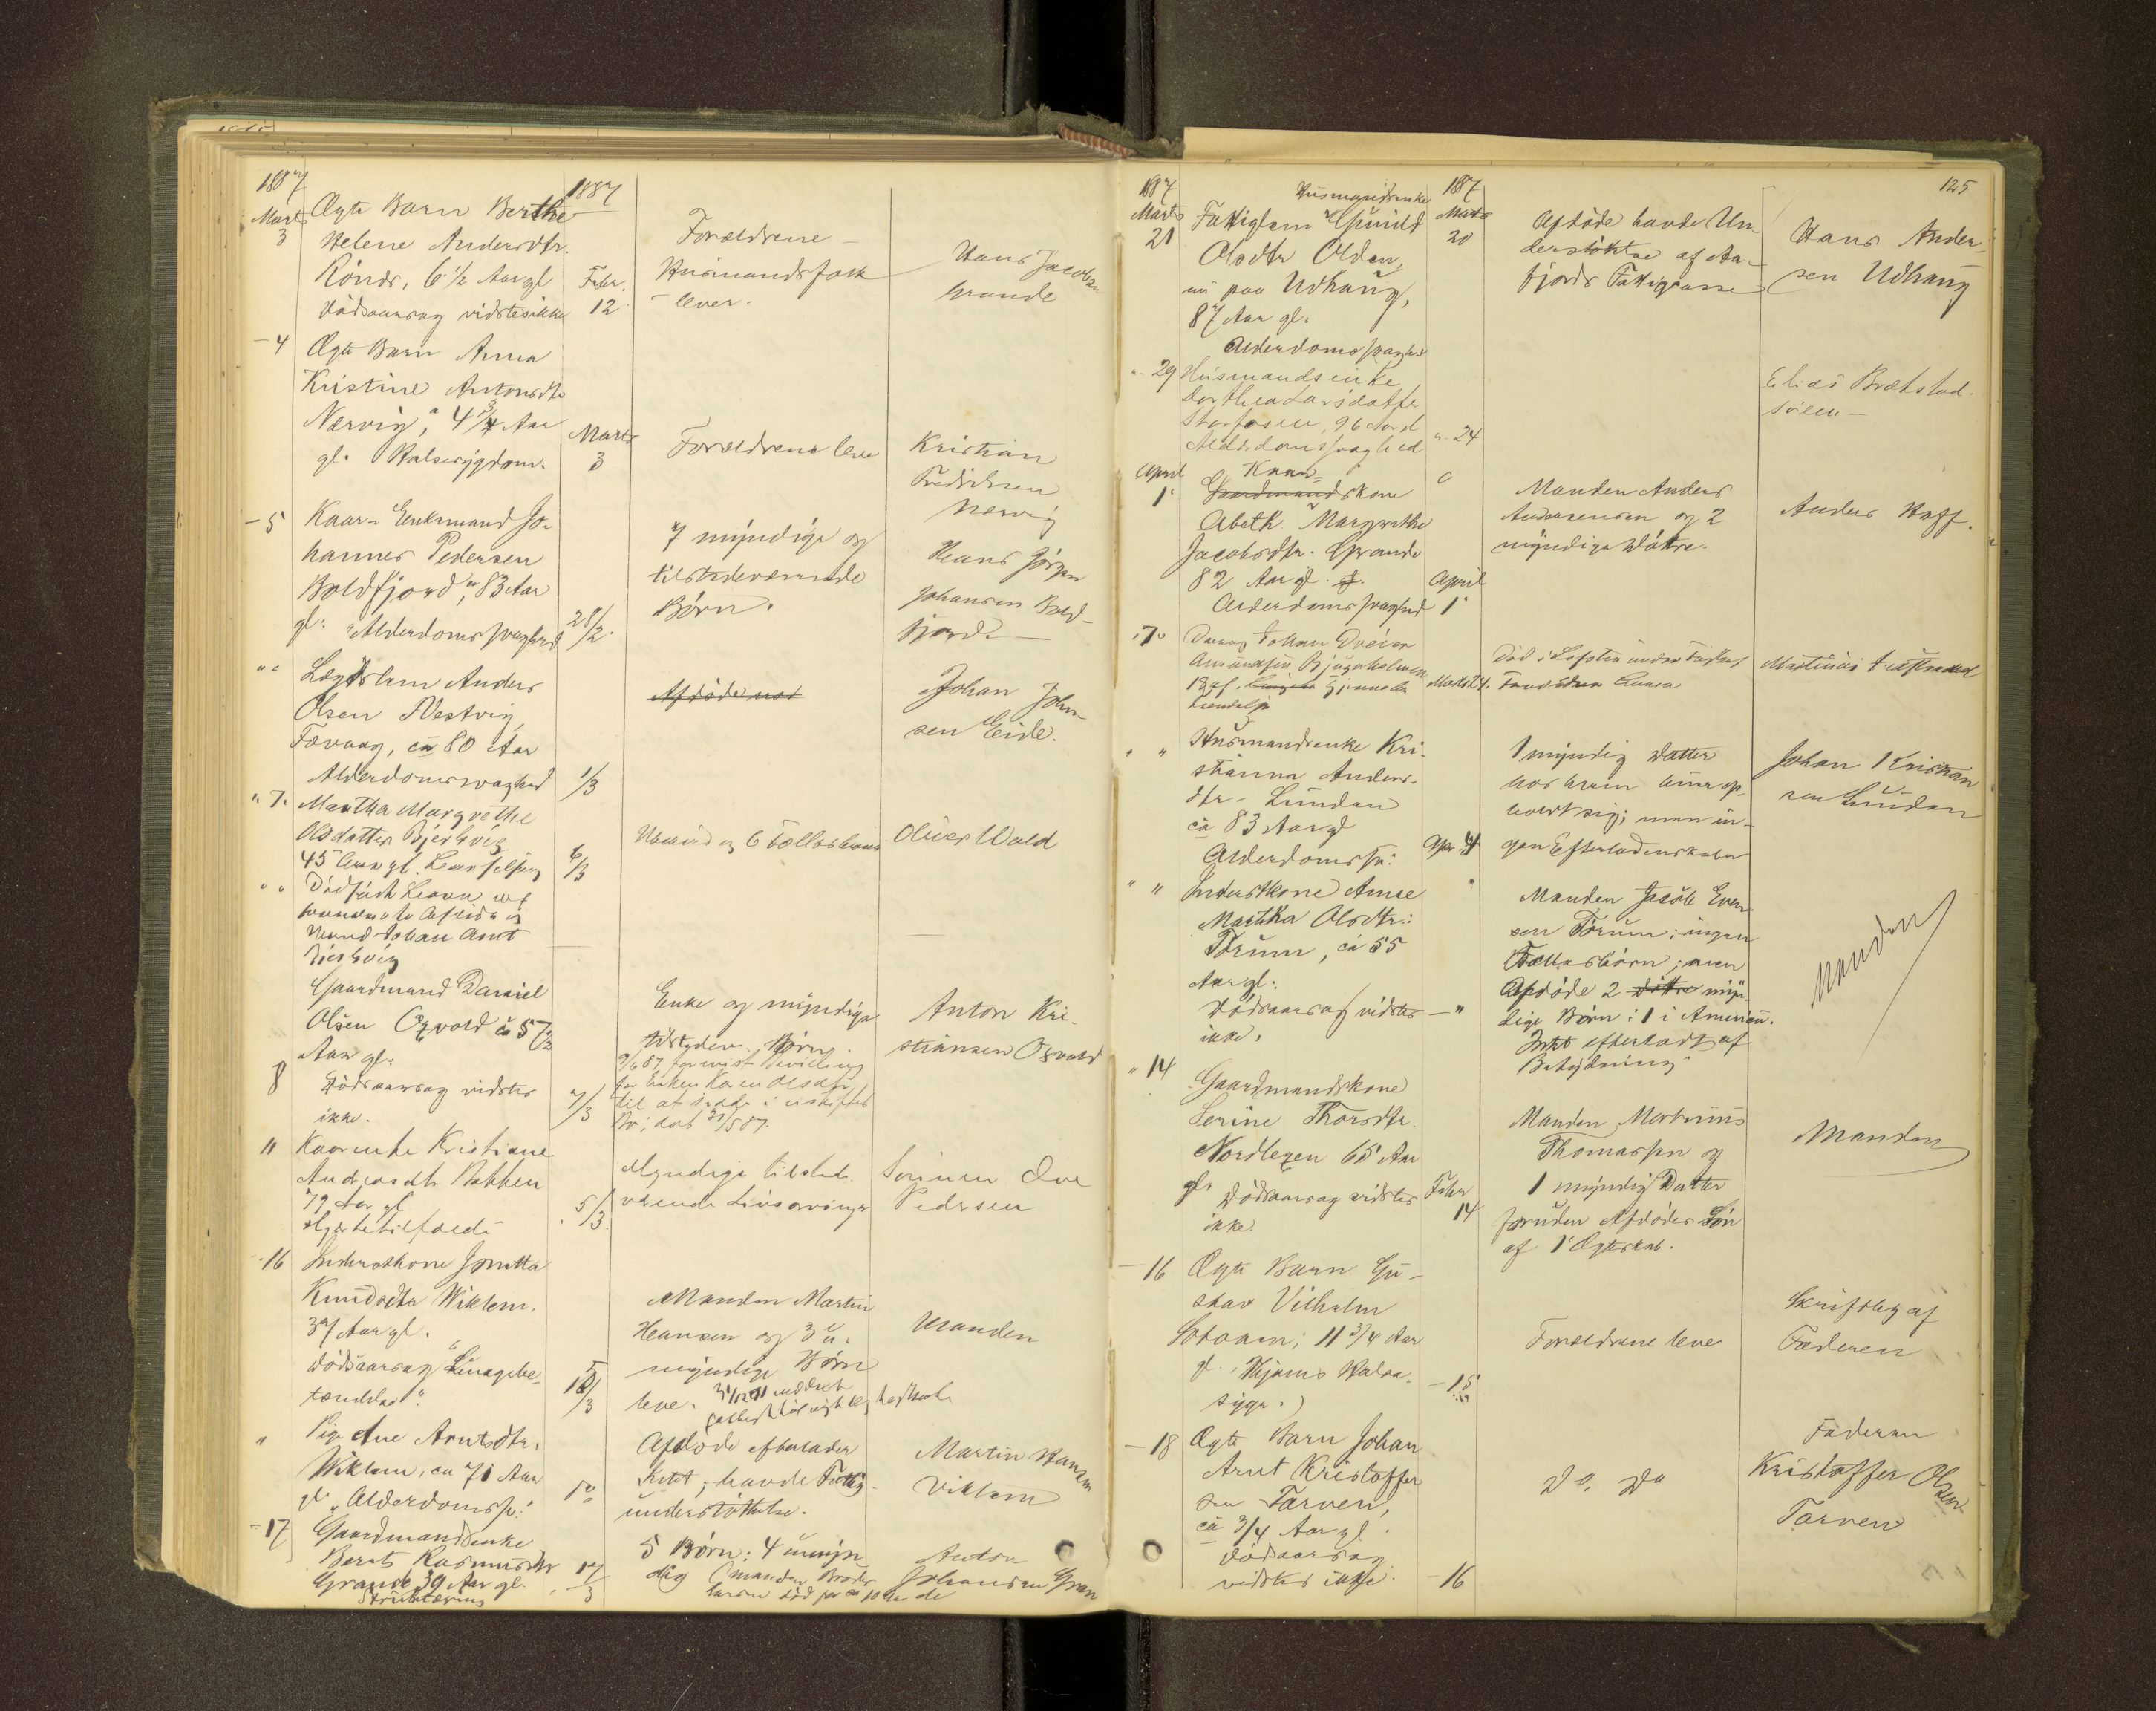 1887
Marts
3
Ægte Barn Berthe
Helene Andersdtr.
Rönds, 6 1/2 Aar gl
Dödsaarsag vidstes ikke
1887
Febr.
12
Forældrene
Husmandsfolk
lever.
Hans Jacobsen
Grande
- 4
Ægte Barn Anna
Kristine Antonsdtr
Nærvig, 4 3/4 Aar
gl. Halssygdom.
Marts
3
Forældrene leve
Kristian
Fredriksen
Nærvig
- 5
Kaar- Enkemand Jo-
hannes Pedersen
Boldfjord, 83 Aar
gl. "Alderdomssvaghed
28/2
7 myndige og
tilstedeværende
Börn.
Hans Jörgen
Johansen Bold-
fjord.
" "
Lægdslem Anders
Olsen Nestvig
Tarvaag, ca 80 Aar
Alderdomssvaghed
1/3
Afdöde var
Johan Johan-
sen Eide.
" 7.
Martha Margrethe
Olsdatter
45 Aar gl.
6/3
Mand og 6 Fællesbörn
Oliver Wold
" "
Johan Arnt
8
Gaardmand Daniel
Olsen Osvold ca 57 1/2
Aar gl.
Dödsaarsag vidstes
ikke.
7/3
Enke og myndige
tilstedev. Börn.
9/6 87 forevist Bevilling
for Enken Karen Olsdtr
til at sidde i uskiftet
Bo, dat 31/5 87.
Anton Kri-
stiansen Osvold
11
Kaarenke Kristiane
Andreasdtr Nabben
79 Aar gl.
Hjertetilfælde
5/3
Myndige tilstede-
værende Livsarvinger
Pedersen
- 16
Inderstkone Jonetta
Knudsdtr Wiklem.
37 Aar gl.
Dödsaarsag "Lungebe-
tændelse".
15/3
Manden Martin
Hansen og 3 u-
myndige Börn
leve.
Manden
"
Pige Ane Arntsdtr.
Wiklem, ca 71 Aar
gl. "Alderdomssv."
Afdöde efterlader
Intet; havde Fattig-
understöttelse.
Martin Hansen
Viklem
- 17
Gaardmandsenke
Berit Rasmusdtr
Grande 39 Aar gl.
17/3
5 Börn: 4 umyn-
dig
Anton
Johansen Gran
de
125
1887
Marts
21
Husmandsenke
Fattiglem Gunild
Olsdtr Olden,
nu paa Udhaug,
87 Aar gl.
Alderdomssvaghed
1887
Marts
20
Afdöde havde Un-
derstöttse af Aa-
fjords Fattigcasse
Hans Ander-
sen Udhaug
" 29
Husmandsenke
Dorthea Larsdatter
Storfosen, 96 Aar gl
Alderdomssvaghed
" 24
Elias Brækstad-
söien
April
1'
Kaar-
Gaardmandskone
Abeth. Margrethe
Jacobsdtr. Grande
82 Aar gl.
Alderdomssvaghed
April
1'
Manden Anders
Andersensen og 2
myndige Döttre.
Anders Hoff.
" 7.
Johan
Marts 24.
" "
Husmandsenke Kri-
stianna Anders-
dtr. Lunden
ca 83 Aar gl
Alderdomssv:
Apr. 4
1 myndig Datter
hos hvem hun op-
holdt sig; men in-
gen Efterladenskaber
Johan Kristian
sen Lunden
" "
Inderstkone Anne
Martha Olsdtr:
Törum, ca 55
Aar gl.
Dödsaarsag vidstes
ikke.
- "
Manden Jacob Even-
sen Törum; ingen
Fællesbörn; men
Afdöde 2 döttre myn-
dige Börn: 1 i Amerika.
Intet efterladt af
Betydning.
Manden
" 14
Gaardmandskone
Serine Thorsdtr.
Nordlexen 65 Aar
gl. Dödsaarsag vidstes
ikke.
Febr
14
Manden Martinus
Thomassen og
1 myndig Datter
foruden Afdödes Sön
af 1' Ægteskab.
Manden
- 16
Ægte Barn Gu-
stav Vilhelm
11 3/4 Aar
gl.
syge.)
- 15
Forældrene leve
Skriftlig af
Faderen
- 18
Ægte Barn Johan
Arnt Kristoffer
sen Tarven,
ca 3/4 Aar gl.
Dödsaarsag
vidstes ikke.
- 16
Do. Do
Faderen
Kristoffer Olsen
Tarven